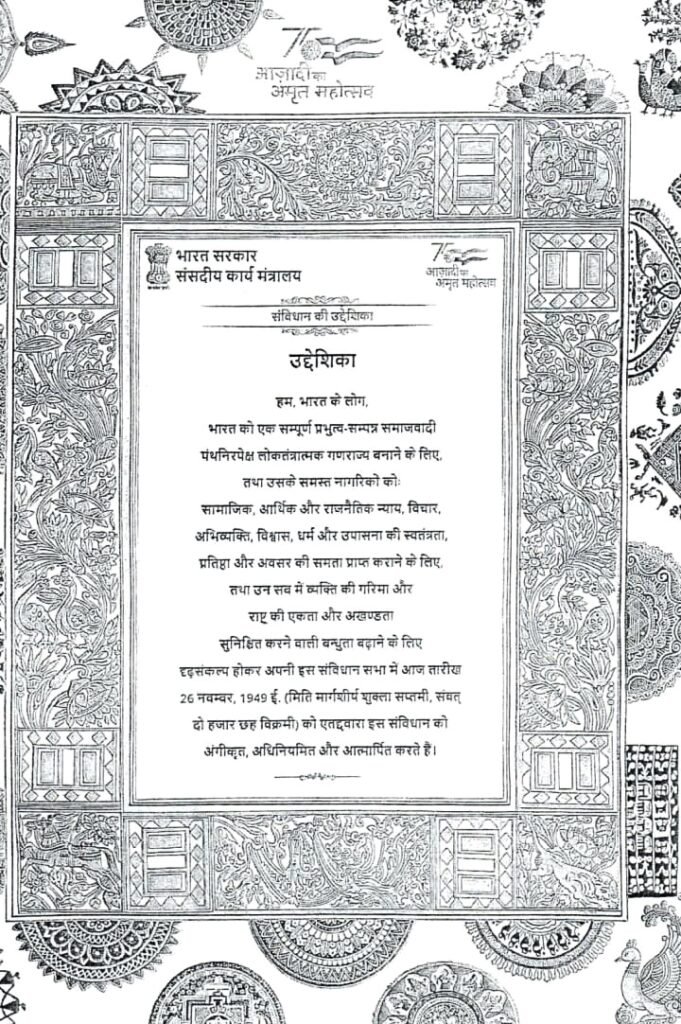 75
आज़ादी का
अमृत महोत्सव
भारत सरकार
संसदीय कार्य मंत्रालय
75
आज़ादी का
अमृत महोत्सव
संविधान की उद्देशिका
उद्देशिका
हम, भारत के लोग,
भारत को एक सम्पूर्ण प्रभुत्व-सम्पन्न समाजवादी
पंथनिरपेक्ष लोकतंत्रात्मक गणराज्य बनाने के लिए,
तथा उसके समस्त नागरिको कोः
सामाजिक, आर्थिक और राजनैतिक न्याय, विचार,
अभिव्यक्ति, विश्वास, धर्म और उपासना की स्वतंत्रता,
प्रतिष्ठा और अवसर की समता प्राप्त कराने के लिए,
तथा उन सब में व्यक्ति की गरिमा और
राष्ट्र की एकता और अखण्डता
सुनिश्चित करने वाली बन्धुता बढ़ाने के लिए
दृढ़संकल्प होकर अपनी इस संविधान सभा में आज तारीख
26 नवम्बर, 1949 ई. (मिति मार्गशीर्ष शुक्ला सप्तमी, संवत्
दो हजार छह विक्रमी) को एतद्दवारा इस संविधान को
अंगीकृत, अधिनियमित और आत्मार्पित करते हैं।